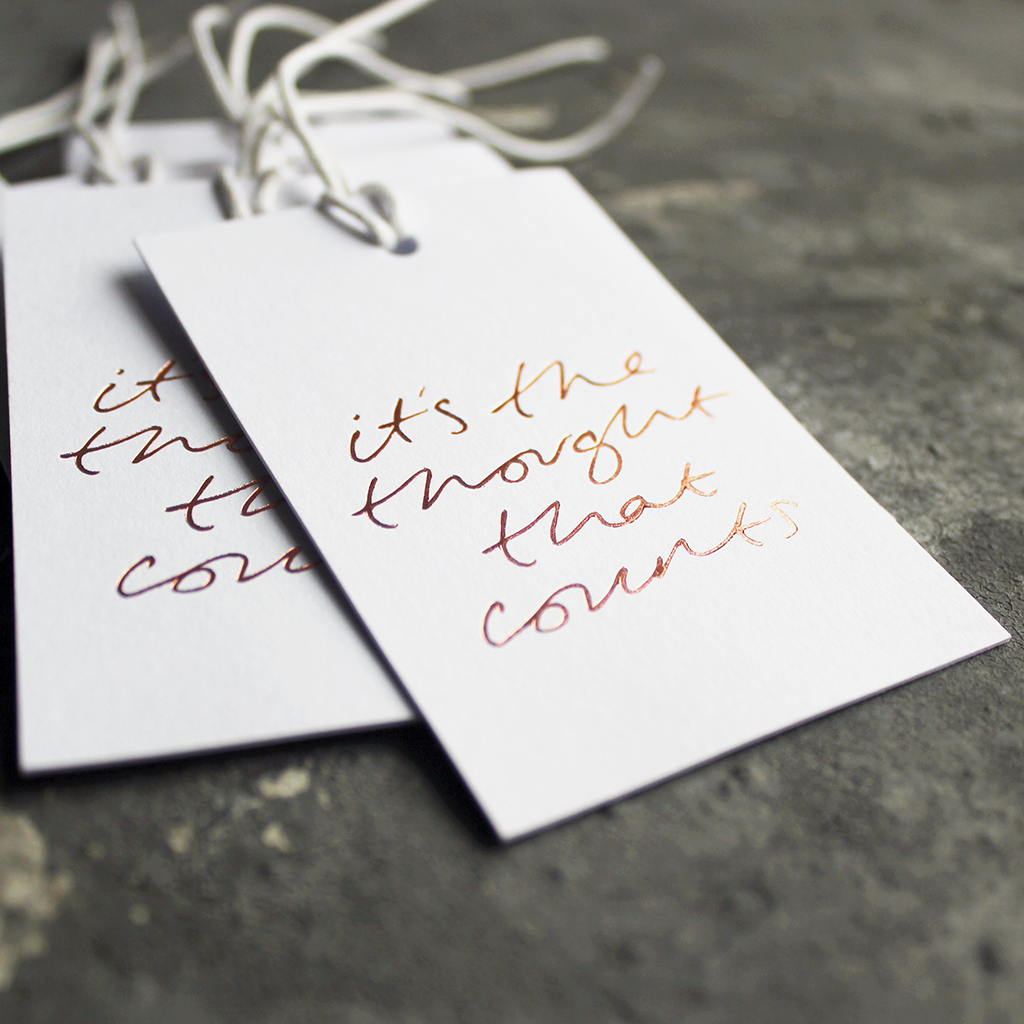 it's the
thought
that
counts
it'
th
th
cou